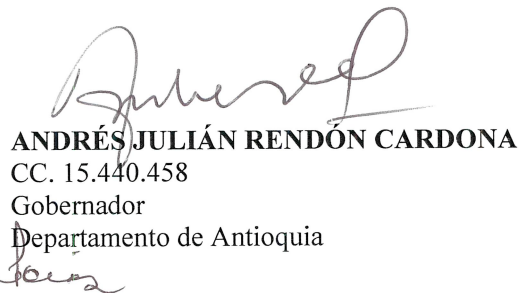 ANDRÉS JULIÁN RENDÓN CARDONA
CC. 15.440.458
Gobernador
Departamento de Antioquia